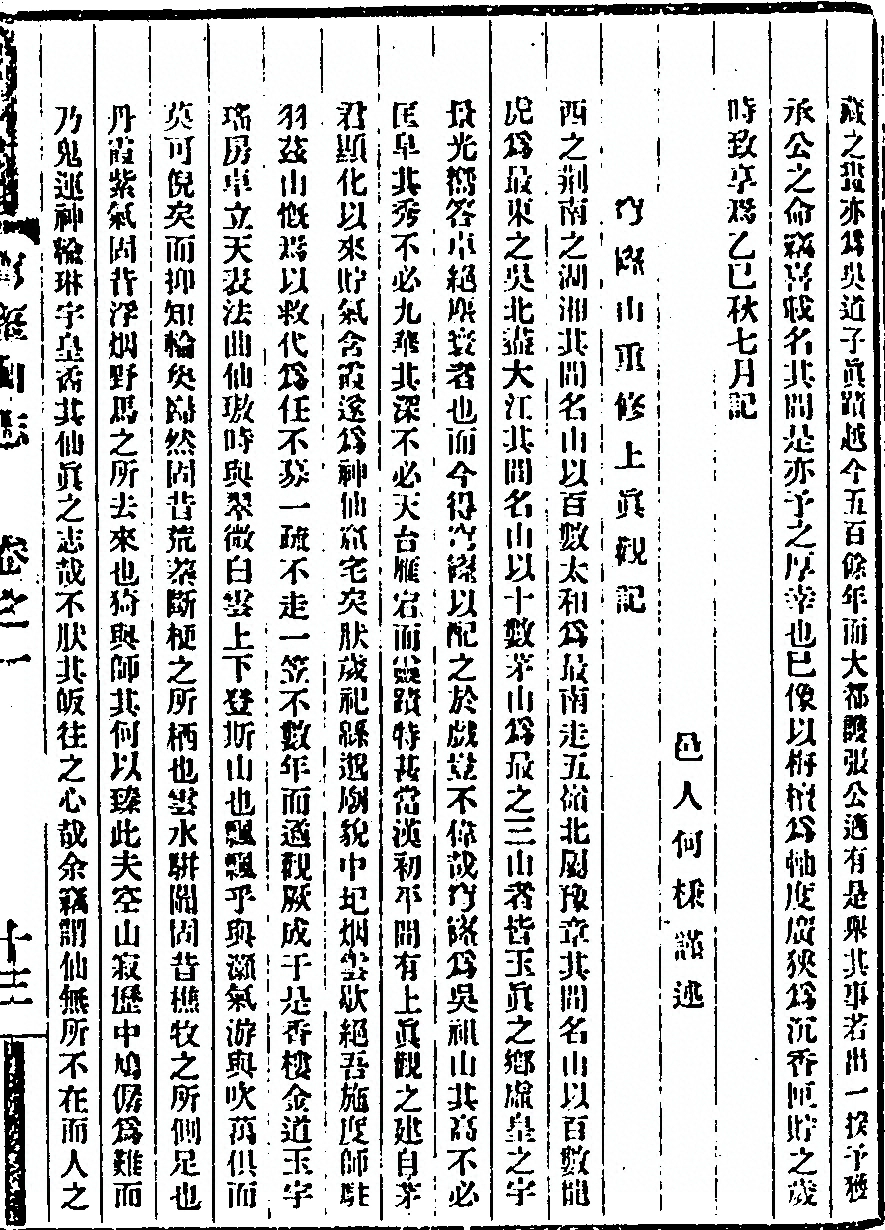 藏之蹟亦爲吳道子眞蹟越今五百餘年而大都護張公適有是與其事若出一揆予獲
承公之命竊喜畯名其間是亦予之厚幸也已像以栴檀爲軸度廣狹爲沉香匣貯之歲
時致享焉乙巳秋七月記
穹窿山重修上眞觀記
邑人何棅謹述
西之荆南之湖湘其間名山以百數太和爲最南走五嶺北屬豫章其間名山以百數龍
虎爲最東之吳北盡大江其間名山以十數茅山爲最之三山者皆玉眞之鄉虛皇之宇
景光嚮答卓絕塵寰者也而今得穹窿以配之於戲豈不偉哉穹窿爲吳祖山其高不必
匡阜其秀不必九華其深不必天台雁宕而靈蹟特甚當漢初平間有上眞觀之建自茅
君顯化以來貯氣含霞遂爲神仙窟宅矣肰歲祀緜邈廟貌中圮烟雲歇絕吾施度師駐
羽茲山慨焉以救代爲任不募一疏不走一笠不數年而適觀厥成于是香樓金道玉宇
瑤房卓立天表法曲仙璈時與翠微白雲上下登斯山也飄飄乎與灝氣游與吹萬俱而
莫可倪矣而抑知輪奐巋然固昔荒棻斷梗之所栖也雲水駢闐固昔樵牧之所側足也
丹霞紫氣固昔浮烟野馬之所去來也猗與師其何以臻此夫空山寂歷中鳩僝爲難而
乃鬼運神輸琳宇皇沓其仙眞之志哉不肰其皈往之心哉余竊謂仙無所不在而人之
卷之一
十三